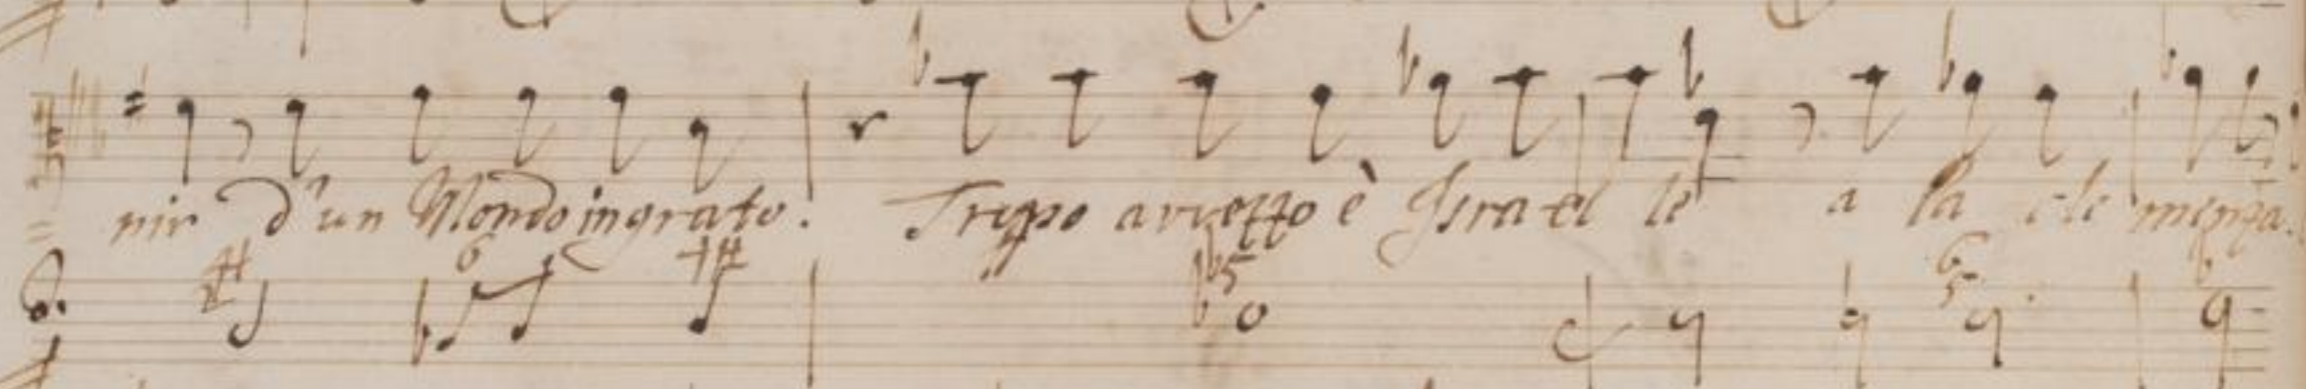 nir d'un Mondo ingrato. Troppo avvetto è Israel le a la cle menza.
6 b5 6 5